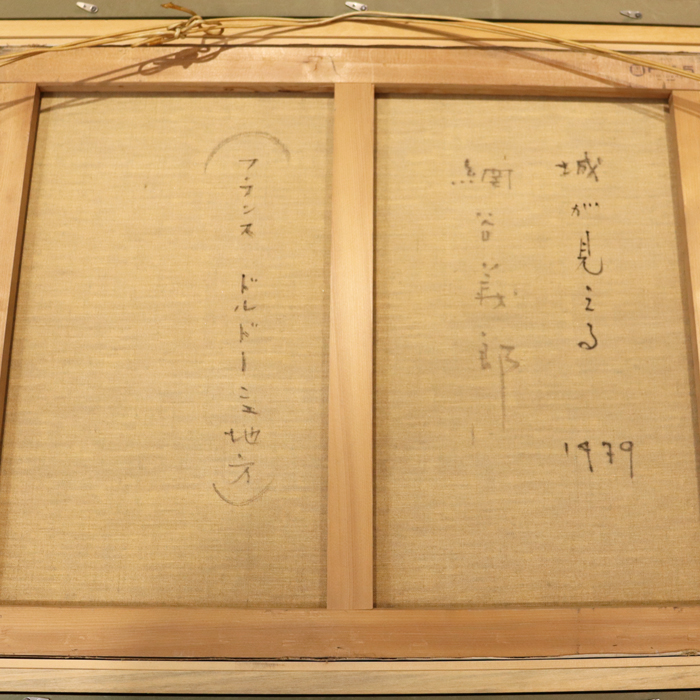 城が見える 1979
網谷義郎
(フランス ドルドーニュ地方)